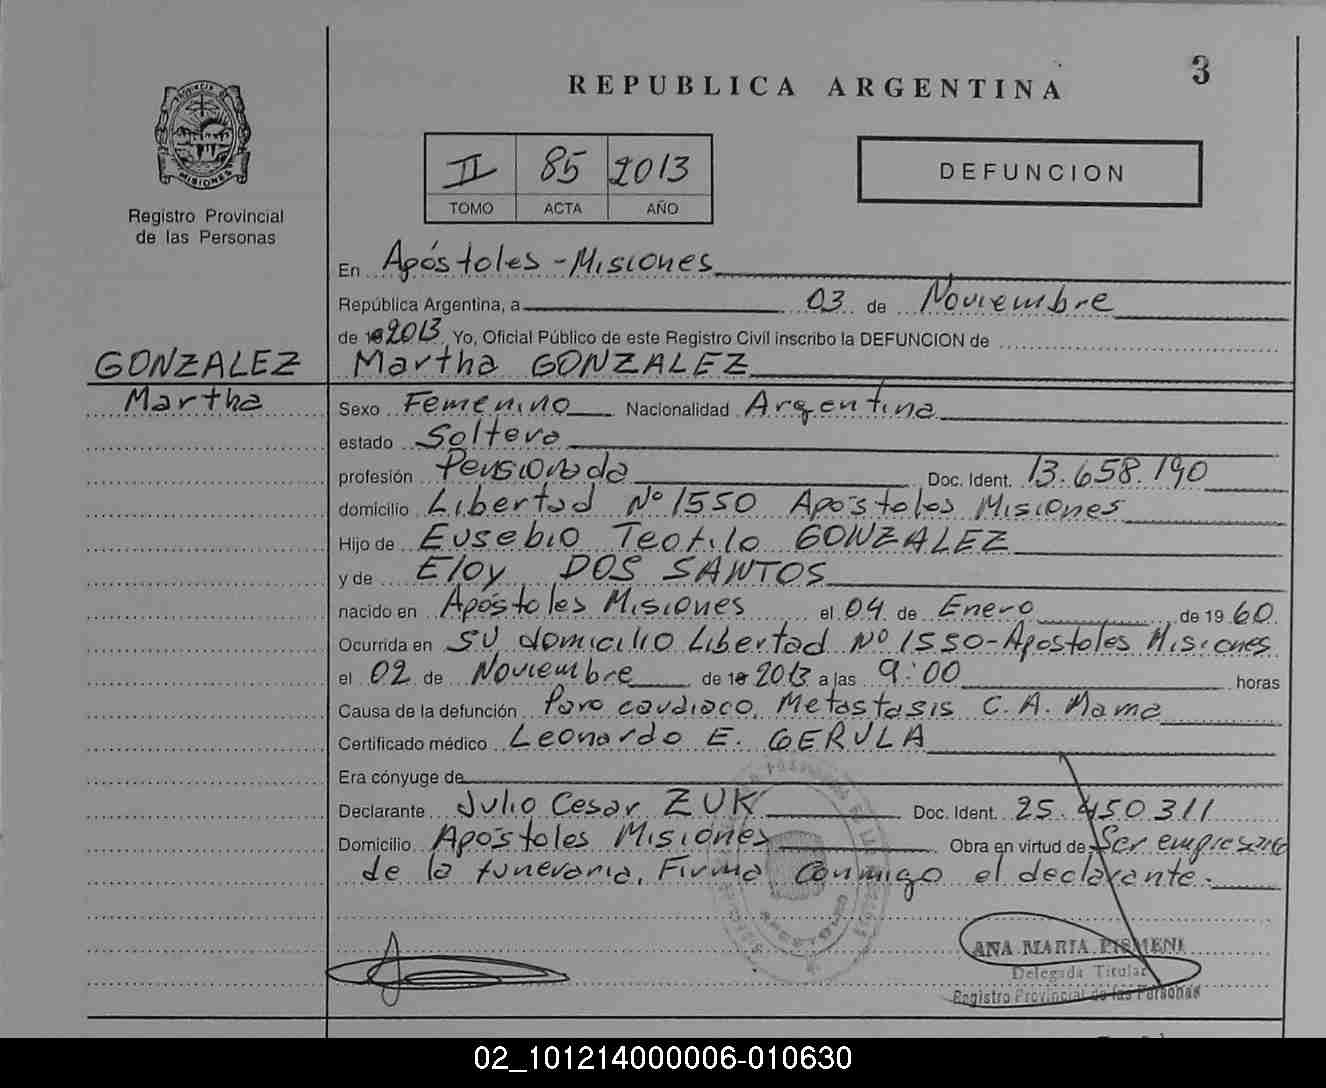 3
REPUBLICA ARGENTINA
PROVINCIA DE
MISIONES
Registro Provincial
de las Personas
II 85 2013
TOMO ACTA AÑO
DEFUNCION
En Apóstoles - Misiones
República Argentina, a 03 de Noviembre
de 2013 Yo, Oficial Público de este Registro Civil inscribo la DEFUNCION de
GONZALEZ Martha GONZALEZ
Martha Sexo Femenino Nacionalidad Argentina
estado Soltera
profesión Pensionada Doc. Ident. 13.658.190
domicilio Libertad Nº 1550 Apóstoles Misiones
Hijo de Eusebio Teofilo GONZALEZ
y de Eloy DOS SANTOS
nacido en Apóstoles Misiones el 04 de Enero de 1960
Ocurrida en su domicilio Libertad Nº 1550 - Apostoles Misiones
el 02 de Noviembre de 2013 a las 9:00 horas
Causa de la defunción Paro cardiaco, Metastasis C.A. Mama
Certificado médico Leonardo E. GERULA
Era cónyuge de
Declarante Julio Cesar ZUK Doc. Ident. 25.450.311
Domicilio Apóstoles Misiones Obra en virtud de Ser empresario
de la funeraria. Firma conmigo el declarante.
APOSTOLES
ANA MARIA PISMENI
Delegada Titular
Registro Provincial de las Personas
02_101214000006-010630